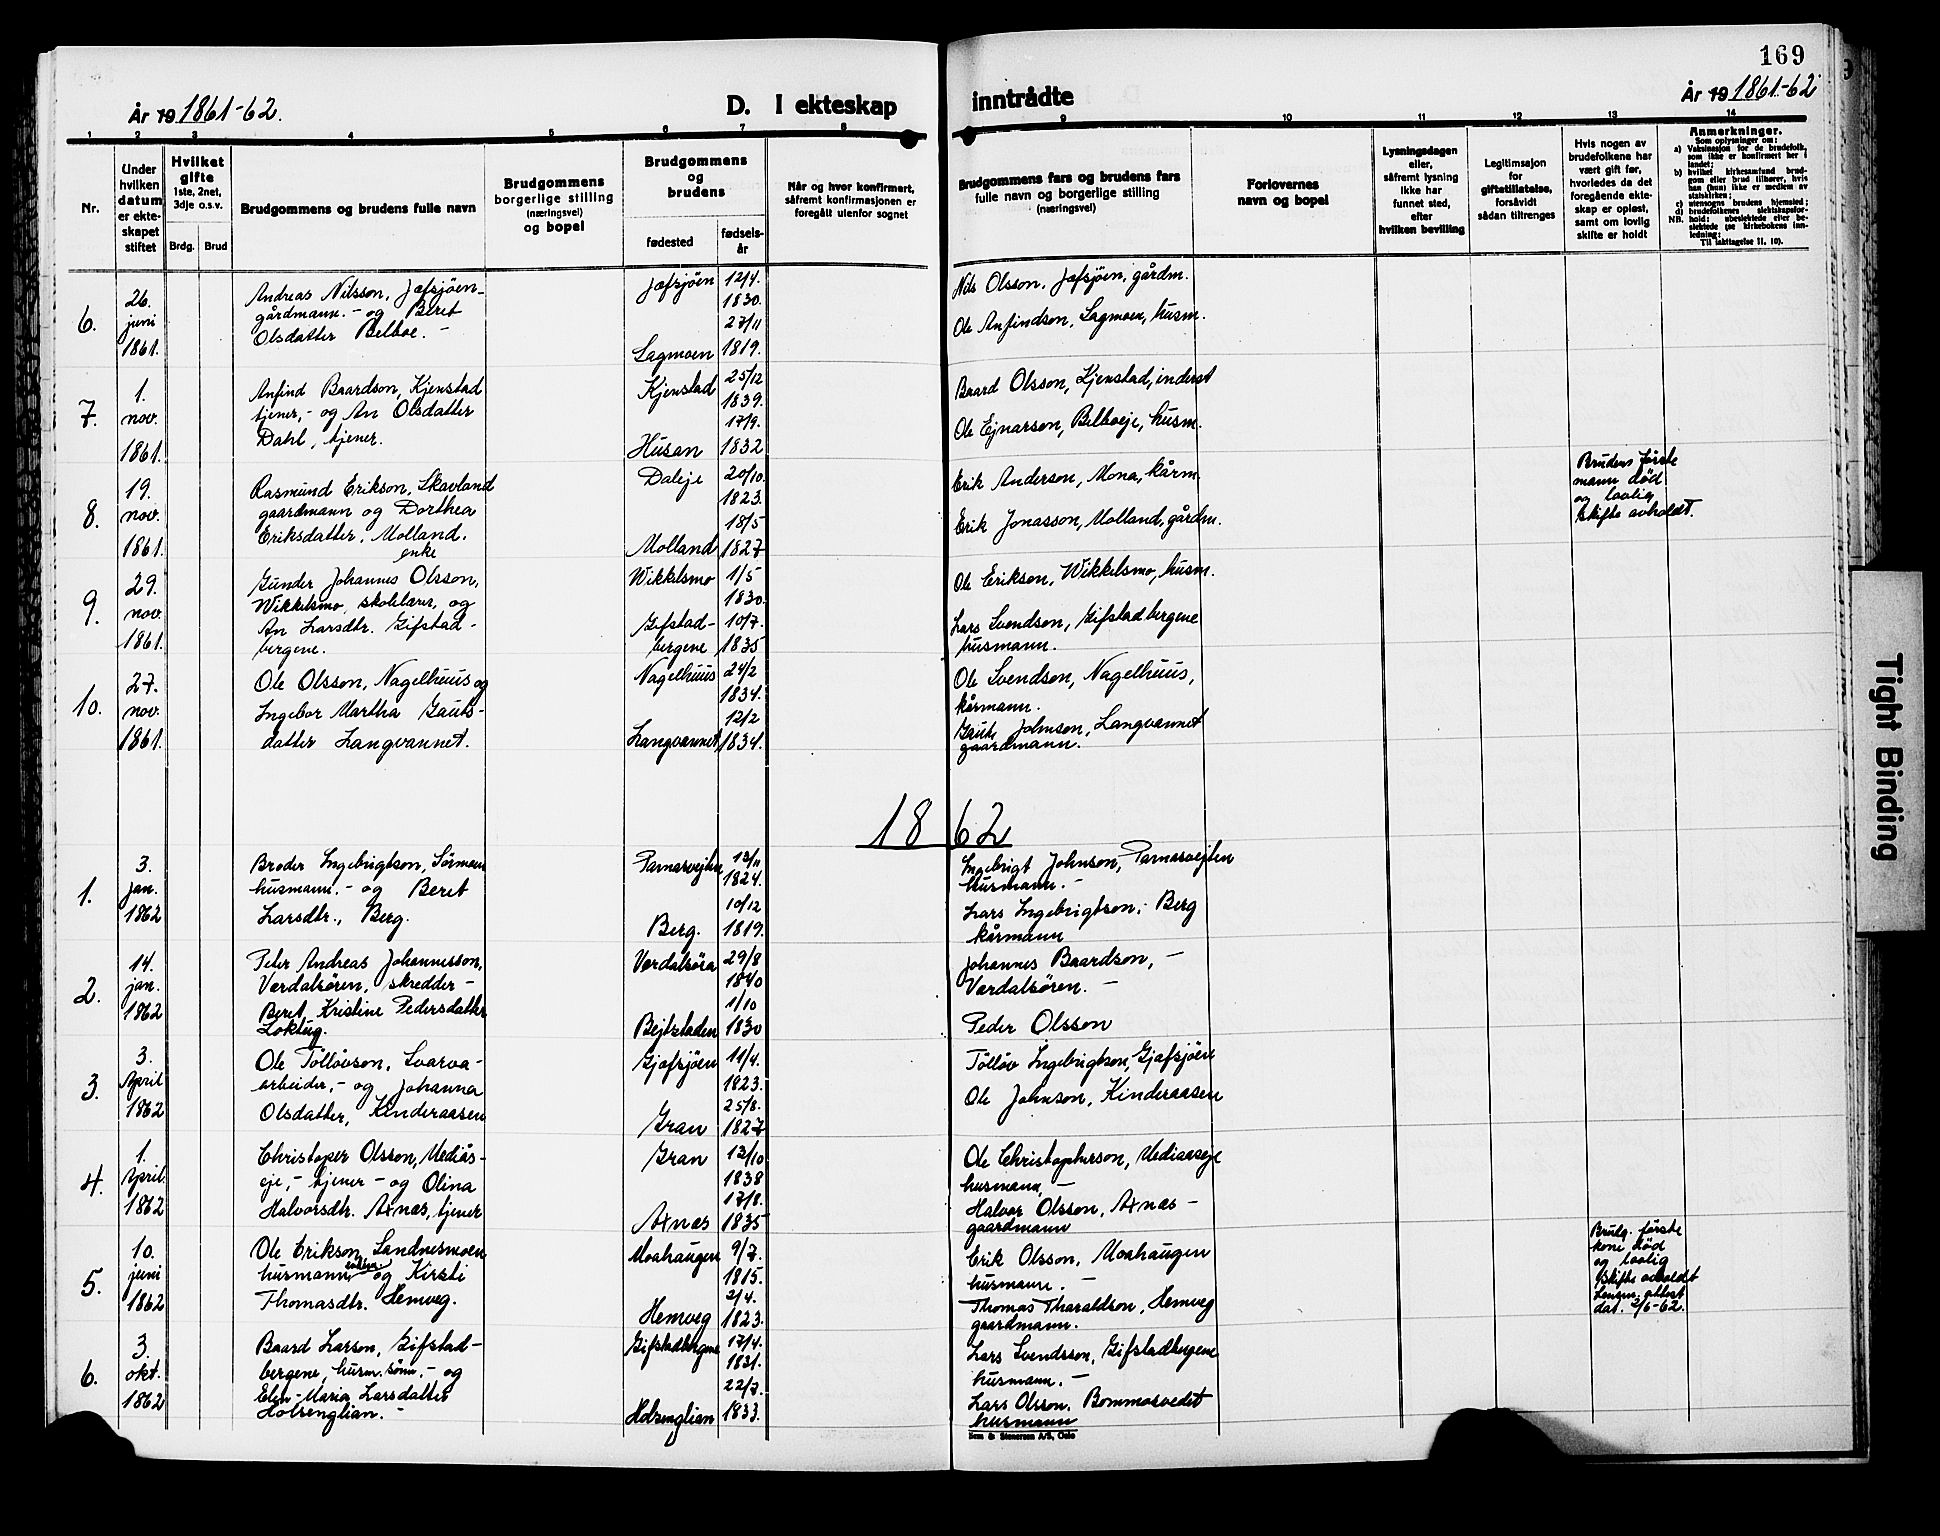 169
År 19 1861-62.
D. I ekteskap inntrådte
År 19 1861-62
1 2 3 4 5 6 7 8 9 10 11 12 13 14
Nr.
Under hvilken datum er ekteskapet stiftet
Hvilket gifte
1ste, 2net, 3dje o.s.v.
Brdg. Brud
Brudgommens og brudens fulle navn
Brudgommens borgerlige stilling (næringsvei) og bopel
Brudgommens og brudens
fødested
fødselsår
Når og hvor konfirmert, såfremt konfirmasjonen er foregått utenfor sognet
Brudgommens fars og brudens fars fulle navn og borgerlige stilling (næringsvei)
Forlovernes navn og bopel
Lysningsdagen eller, såfremt lysning ikke har funnet sted, efter hvilken bevilling
Legitimasjon for giftetillatelse, forsåvidt sådan tiltrenges
Hvis nogen av brudefolkene har vært gift før, hvorledes da det foregående ekteskap er opløst, samt om lovlig skifte er holdt
Anmerkninger.
Som oplysninger om:
a) Vaksinasjon for de brudefolk, som ikke er konfirmert her i landet;
b) hvilket kirkesamfund brudgom eller brud tilhører, hvis han (hun) ikke er medlem av statskirken;
c) utensogns brudens hjemsted;
d) brudefolkenes slektskapsforhold: ubeslektede eller beslektede (se kirkebokens innledning;
NB. Til iakttagelse II. 10).
6.
26. juni 1861.
Andreas Nilsson, Jæfsjöen-
gårdmann. - og Beret
Olsdatter Belboe. -
Jæfsjöen 12/4. 1830.
Lagmoen 27/11 1819.
Nils Olsson, Jæfsjöen, gårdm.
Ole Anfindson, Lagmoen, husm.
7.
1. nov. 1861.
Anfind Baardson, Kjenstad
tjener, - og An Olsdatter
Dahl, tjener.
Kjenstad 25/12 1839.
Husan 17/9. 1832
Baard Olsson, Kjenstad, inderst
Ole Ejnarson, Belboeje, husm.
8.
19. nov. 1861.
Rasmund Erikson, Skavland
gaardmann og Dorthea
Eriksdatter, Molland.
enke
Daleje 20/10. 1823.
Molland 18/5 1827
Erik Anderson, Mona, kårm.
Erik Jonasson, Molland, gårdm.
Brudens første
mann død
og lovlig
skifte avholdt.
9.
29. nov. 1861.
Gunder Johannes Olsson,
Wikkelsmo, skolelærer, og
An Larsdtr. Gifstad-
bergene.
Wikkelsmo 1/5 1830.
Gifstad-
bergene 10/7. 1835
Ole Erikson, Wikkelsmo, husm.
Lars Svendson, Gifstadbergene
husmann.
10.
27. nov. 1861.
Ole Olsson, Nagelhuus og
Ingebor Martha Gauts-
datter Langvannet.
Nagelhuus 24/2 1834.
Langvannet 12/2 1834.
Ole Svendson, Nagelhuus,
kårmann.
Gaute Johnson, Langvannet
gaardmann.
1862
1.
3. jan. 1862
Broder Ingebrigtson, Sörmoen
husmann. - og Beret
Larsdtr., Berg.
Parnasvejten 13/11 1824.
Berg. 10/12 1819.
Ingebrigt Johnson, Parnasvejten
husmann. -
Lars Ingebrigtson, Berg
kårmann
2.
14. jan. 1862
Peter Andreas Johannesson,
Værdalsören, skredder -
Beret Kristine Pedersdatter
Loktug.
Værdalsöra 29/8 1840
Bejtstaden 1/10 1830
Johannes Baardson, -
Værdalsören. -
Peder Olsson
3.
3. April 1862
Ole Töllövson, Svarva-
arbeider, - og Johanna
Olsdatter, Kinderaasen
Gjæfsjöen 11/4. 1823.
Gran 25/8. 1827
Töllöv Ingebrigtson, Gjæfsjöen
Ole Johnson, Kinderaasen
4.
1. April 1862
Christoper Olsson, Mediås-
eje, - tjener - og Olina
Halvorsdtr. Axnæs, tjener
Gran 13/10 1838
Axnæs 17/8. 1835
Ole Christopherson, Mediaaseje
husmann. -
Halvor Olsson, Axnæs -
gaardmann
5.
10. juni 1862
Ole Erikson, Sandnesmoen
husmann enkem. og Kirsti
Thomasdtr. Hemveg.
Moahaugen 9/7. 1815.
Hemveg 2/4. 1823.
Erik Olsson, Moahaugen
husmann. -
Thomas Tharaldson, Hemveg
gaardmann.
Brudg. første
kone død
og lovlig
skifte avholdt
Lensm. attest
dat. 2/6-62.
6.
3. okt. 1862
Baard Larson, Gifstad-
bergene, husm. sönn, - og
Elen-Maria Larsdatter
Holsenglian. -
Gifstadbergene 17/4. 1831.
Holsenglian 22/7. 1833.
Lars Svendsson, Gifstadbergene
husmann. -
Lars Olsson, Bommosvedet
husmann
Sem & Stenersen A/S, Oslo
Tight Binding